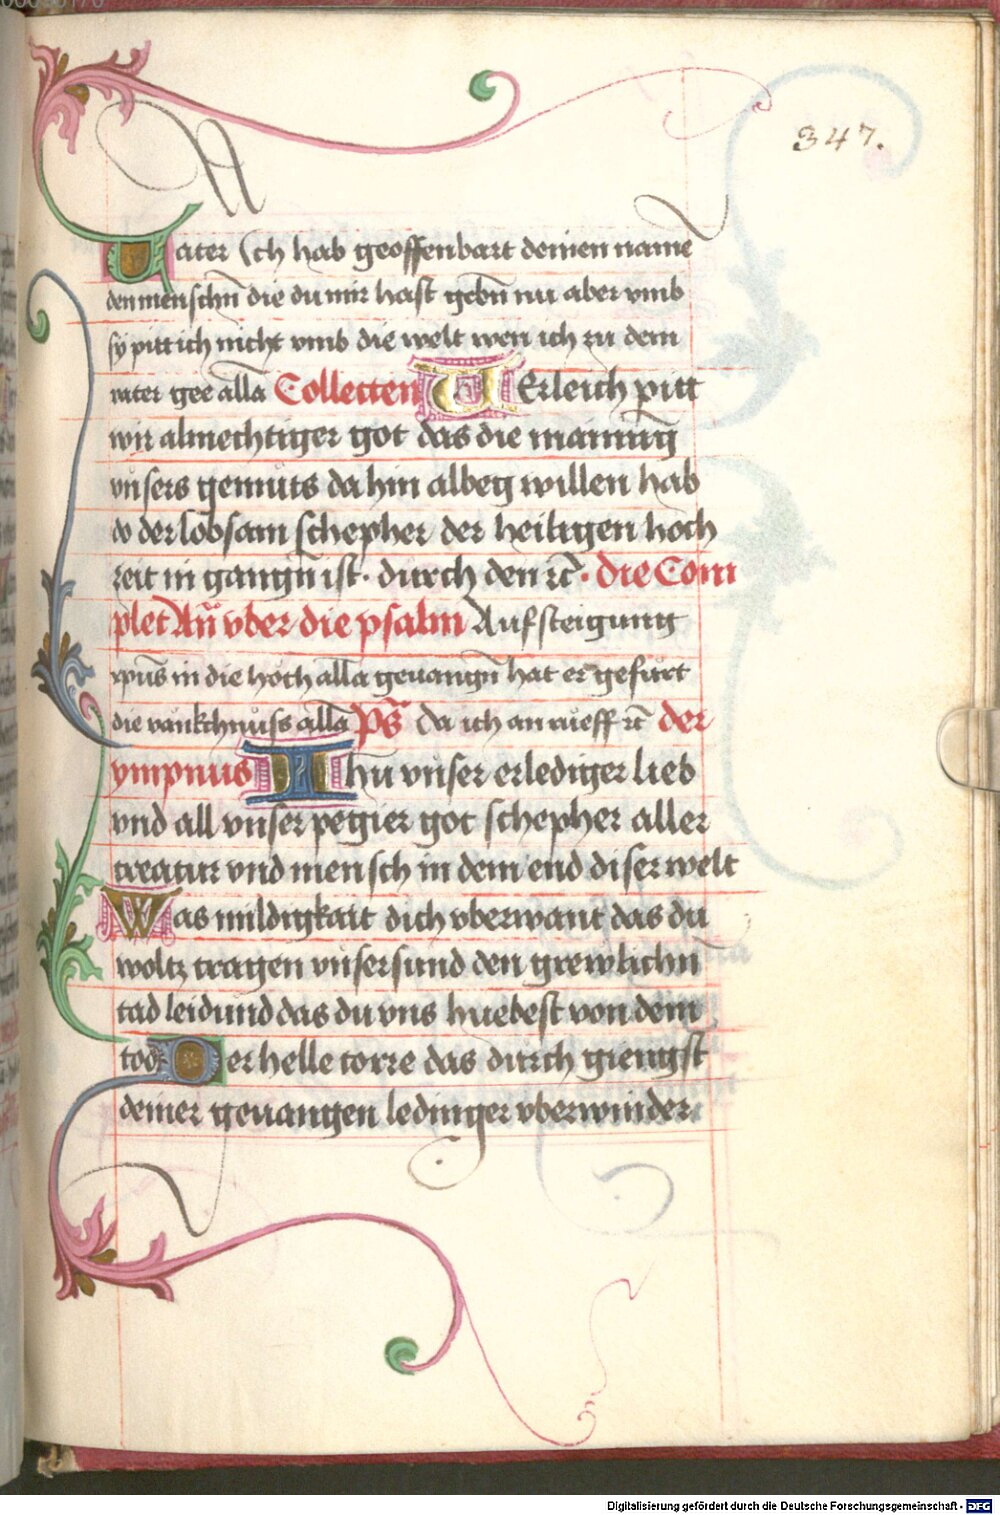 347.
Vater Ich hab geoffenbart deinen name
den menschn̄ die du mir hast gebn̄ nu aber vmb
sy pitt ich nicht vmb die welt wen ich zu dem
vater gee alla Collecten VErleich pitt
wir almechtiger got das die mainūg
vnsers gemuts dahin albeg willen hab
do der lobsam schepher der heiligen hoch
zeit in gangn̄ ist· durch den zc̄· die Com
plet Añ vber die psalm Aufsteigung
xpūs in die hoch alla geuangn̄ hat er gefurt
die vankchnuss alla Ps̄ Da ich an rueff zc̄ der
ympnus Ihū vnser erlediger lieb
vnd all vnser pegier got schepher aller
creatur vnd mensch in dem end diser welt
Was mildigkait dich vberwant das du
woltz tragen vnser sund den grewlichn̄
tad leidund das du vns huebest von dem
tod· Der helle torre das durch giengst
deiner geuangen lediger vberwinder
Digitalisierung gefördert durch die Deutsche Forschungsgemeinschaft - DFG